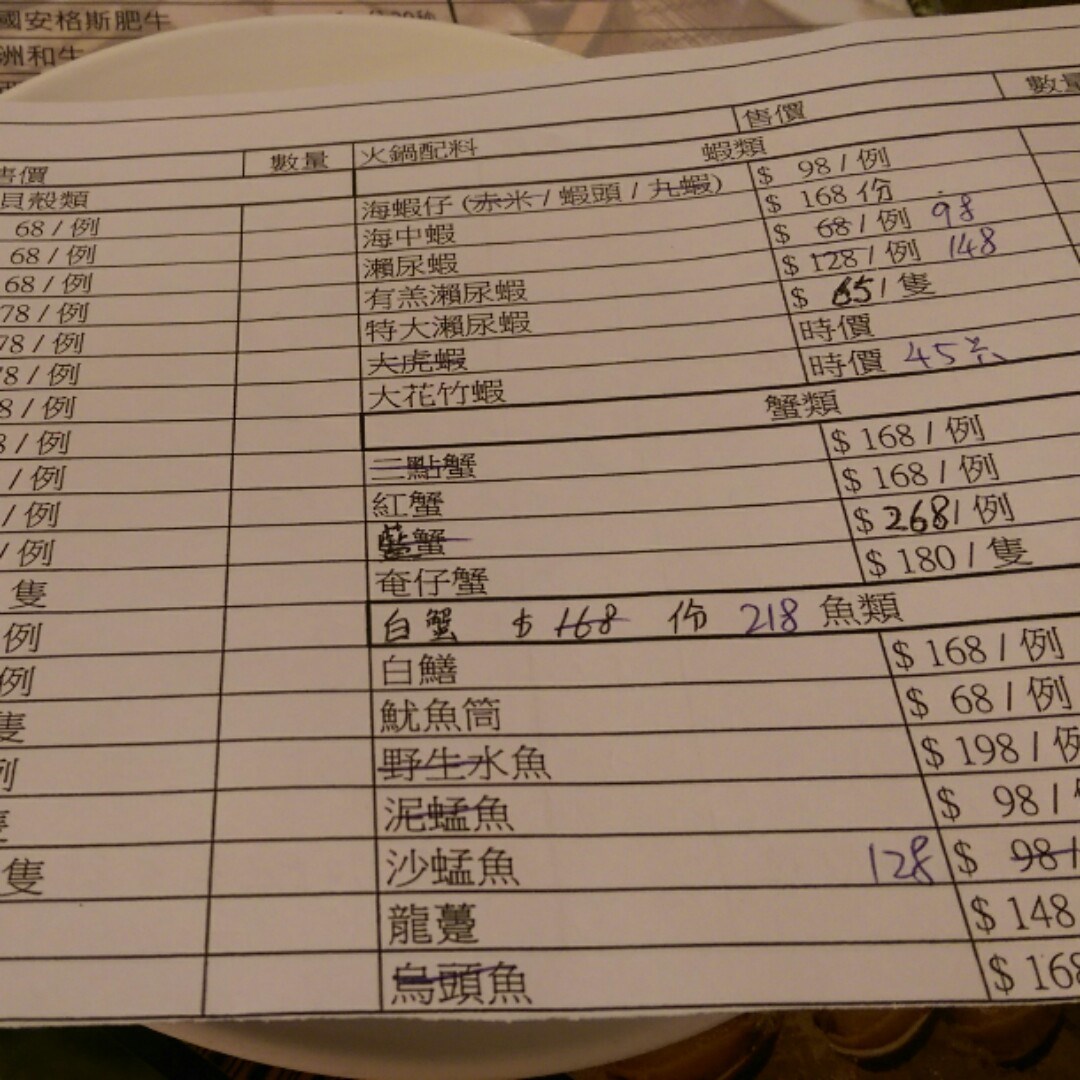 國安格斯肥牛
洲和牛
售價 數量 火鍋配料 售價 數量
貝殼類 蝦類
68 / 例 海蝦仔 (赤米 / 蝦頭 / 丸蝦) $ 98 / 例
68 / 例 海中蝦 $ 168 份
68 / 例 瀨尿蝦 $ 68 / 例 98
78 / 例 有羔瀨尿蝦 $ 128 / 例 148
78 / 例 特大瀨尿蝦 $ 65 / 隻
78 / 例 大虎蝦 時價
8 / 例 大花竹蝦 時價 45元
8 / 例 蟹類
/ 例 三點蟹 $ 168 / 例
/ 例 紅蟹 $ 168 / 例
/ 例 藍蟹 $ 268 / 例
隻 奄仔蟹 $ 180 / 隻
例 白蟹 $ 168 份 218 魚類
例 白鱔 $ 168 / 例
隻 魷魚筒 $ 68 / 例
例 野生水魚 $ 198 / 例
隻 泥蜢魚 $ 98 /
隻 沙蜢魚 128 $ 98 /
龍躉 $ 148
烏頭魚 $ 168